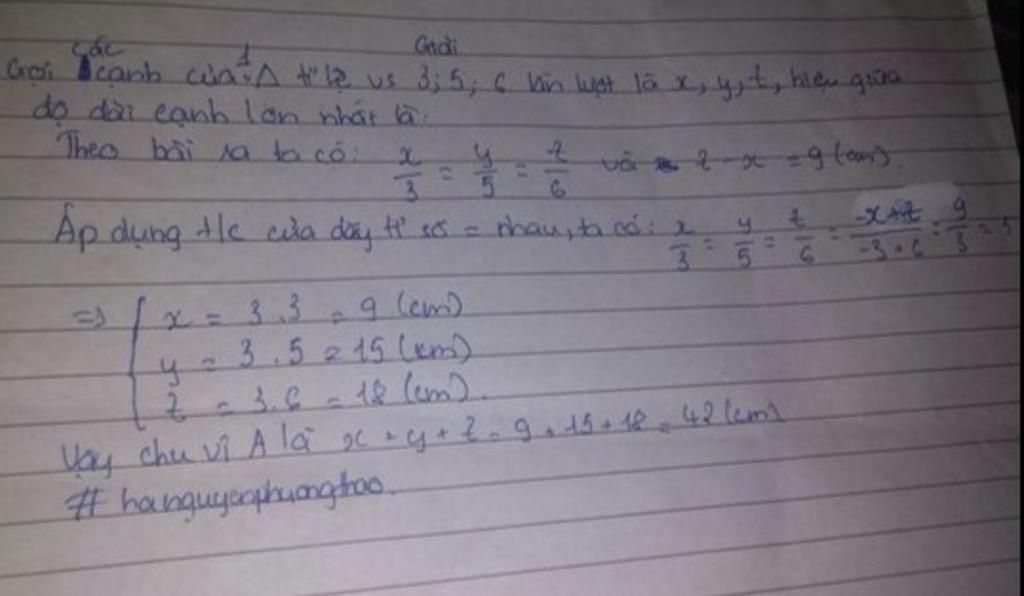 Giải
Gọi các cạnh của 1 Δ tỉ lệ vs 3; 5; 6 lần lượt là x, y, z, hiệu giữa
độ dài cạnh lớn nhất là:
Theo bài ra ta có: x/3 = y/5 = z/6 và z - x = 9 (cm).
Áp dụng t/c của dãy tỉ số = nhau, ta có: x/3 = y/5 = z/6 = -x+z/-3+6 = 9/3 = 3
=> { x = 3.3 = 9 (cm)
y = 3.5 = 15 (cm)
z = 3.6 = 18 (cm).
Vậy chu vi Δ là x + y + z = 9 + 15 + 18 = 42 (cm)
# hanguyenphuongthao.